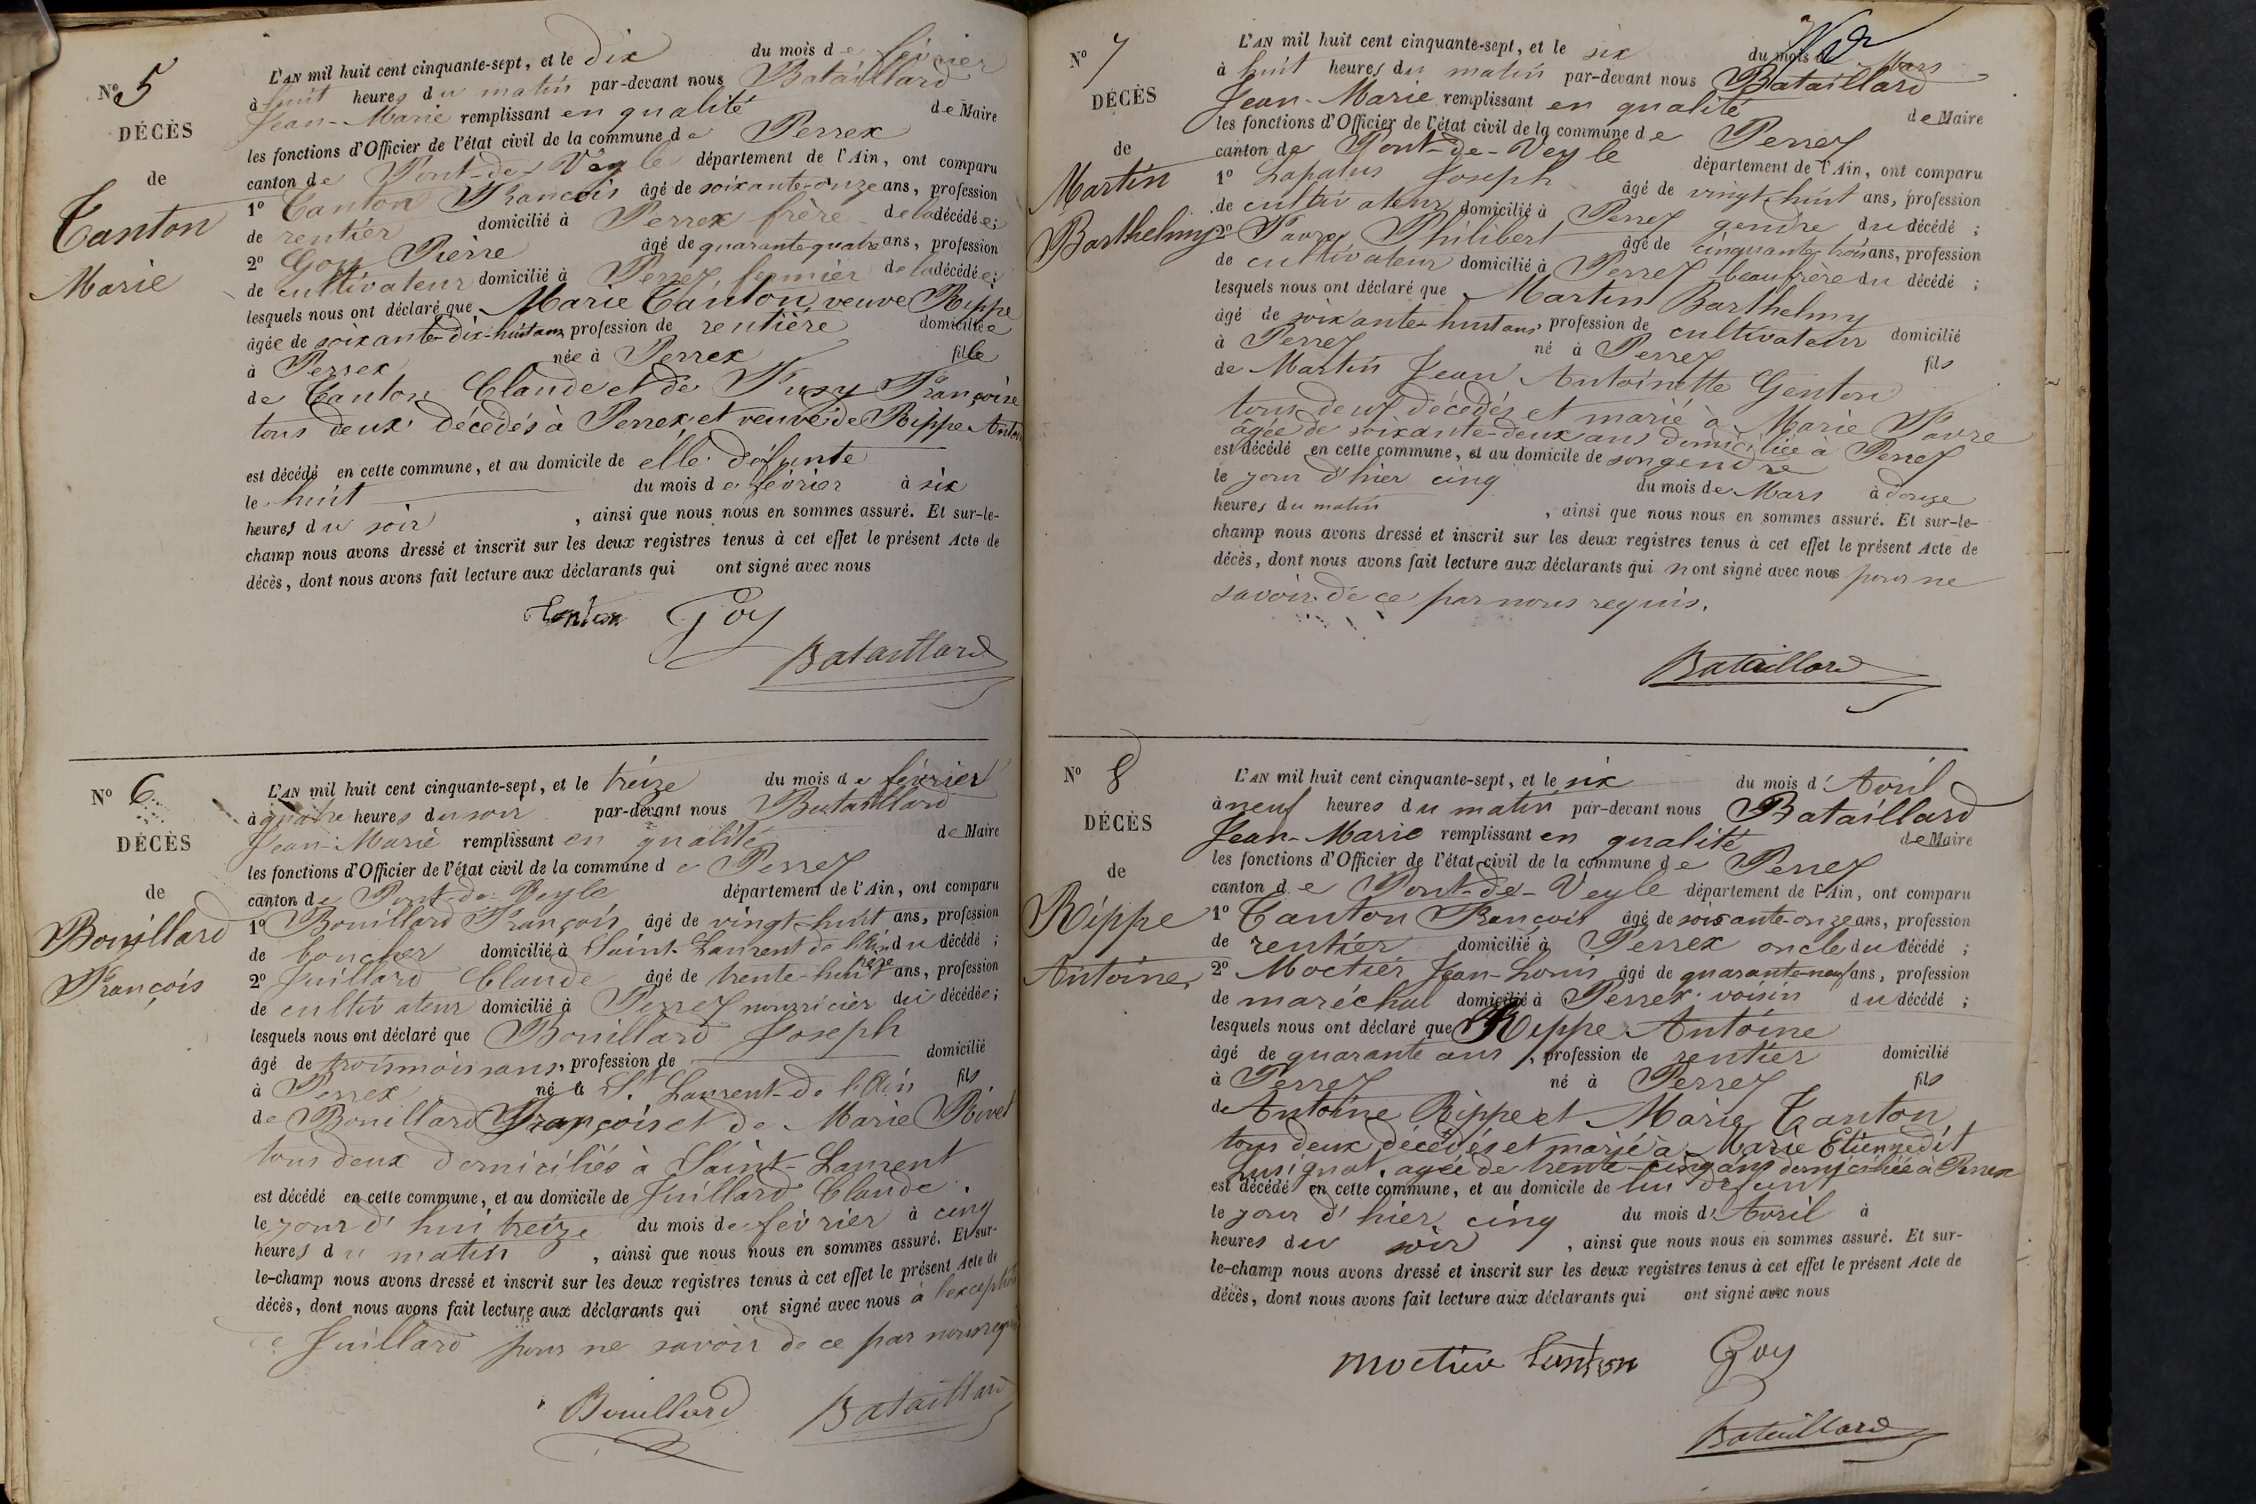 N° 5
DÉCÈS
de
Tanton
Marie
L'AN mil huit cent cinquante-sept, et le dix du mois de février
à huit heures du matin par-devant nous Bataillard
Jean-Marie remplissant en qualité de Maire
les fonctions d'Officier de l'état civil de la commune de Perrex
canton de Pont-de-Veyle département de l'Ain, ont comparu
1° Tanton François âgé de soixante-onze ans, profession
de rentier domicilié à Perrex frère de la décédée;
2° Goy Pierre âgé de quarante-quatre ans, profession
de cultivateur domicilié à Perrex fermier de la décédée;
lesquels nous ont déclaré que Marie Tanton, veuve Rippe
âgée de soixante-dix-huit ans, profession de rentière domiciliée
à Perrex née à Perrex fille
de Tanton Claude et de Fusy Françoise
tous deux décédés à Perrex et veuve de Rippe Antoi
est décédé en cette commune, et au domicile de elle défunte
le huit du mois de février à six
heures du soir, ainsi que nous nous en sommes assuré. Et sur-le-
champ nous avons dressé et inscrit sur les deux registres tenus à cet effet le présent Acte de
décès, dont nous avons fait lecture aux déclarants qui ont signé avec nous
Tanton Goy
Bataillard
N° 6
DÉCÈS
de
Bouillard
François
L'AN mil huit cent cinquante-sept, et le treize du mois de février
à quatre heures du soir par-devant nous Bataillard
Jean-Marie remplissant en qualité de Maire
les fonctions d'Officier de l'état civil de la commune de Perrex
canton de Pont-de-Veyle département de l'Ain, ont comparu
1° Bouillard François âgé de vingt-huit ans, profession
de boucher domicilié à Saint-Laurent de l'Ain père du décédé;
2° Juillard Claude âgé de trente-huit ans, profession
de cultivateur domicilié à Perrex nourricier du décédée;
lesquels nous ont déclaré que Bouillard Joseph
âgé de trois mois ans, profession de domicilié
à Perrex né à St. Laurent-de l'Ain fils
de Bouillard François et de Marie Rivet
tous deux domiciliés à Saint-Laurent
est décédé en cette commune, et au domicile de Juillard Claude.
le jour d'hui treize du mois de février à cinq
heures du matin, ainsi que nous nous en sommes assuré. Et sur-
le-champ nous avons dressé et inscrit sur les deux registres tenus à cet effet le présent Acte de
décès, dont nous avons fait lecture aux déclarants qui ont signé avec nous à l'exception
de Juillard pour ne savoir de ce par nous requis
Bouillard Bataillard
N° 7
DÉCÈS
de
Martin
Barthelmy
L'AN mil huit cent cinquante-sept, et le six du mois de Mars
à huit heures du matin par-devant nous Bataillard
Jean-Marie remplissant en qualité de Maire
les fonctions d'Officier de l'état civil de la commune de Perrex
canton de Pont-de-Veyle département de l'Ain, ont comparu
1° Lapalus Joseph âgé de vingt-huit ans, profession
de cultivateur domicilié à Perrex gendre du décédé;
2° Favre Philibert âgé de cinquante-trois ans, profession
de cultivateur domicilié à Perrex beaufrère du décédé;
lesquels nous ont déclaré que Martin Barthelmy
âgé de soixante-huit ans, profession de cultivateur domicilié
à Perrex né à Perrex fils
de Martin Jean Antoinette Genton
tous deux décédés et marié à Marie Favre
âgée de soixante-deux ans domiciliée à Perrex
est décédé en cette commune, et au domicile de son gendre
le jour d'hier cinq du mois de Mars à douze
heures du matin, ainsi que nous nous en sommes assuré. Et sur-le-
champ nous avons dressé et inscrit sur les deux registres tenus à cet effet le présent Acte de
décès, dont nous avons fait lecture aux déclarants qui n'ont signé avec nous pour ne
savoir de ce par nous requis.
Bataillard
N° 8
DÉCÈS
de
Rippe
Antoine
L'AN mil huit cent cinquante-sept, et le six du mois d'Avril
à neuf heures du matin par-devant nous Bataillard
Jean-Marie remplissant en qualité de Maire
les fonctions d'Officier de l'état civil de la commune de Perrex
canton de Pont-de-Veyle département de l'Ain, ont comparu
1° Tanton François âgé de soixante-onze ans, profession
de rentier domicilié à Perrex oncle du décédé;
2° Moctier Jean-Louis âgé de quarante-neuf ans, profession
de maréchal domicilié à Perrex voisin du décédé;
lesquels nous ont déclaré que Rippe Antoine
âgé de quarante ans, profession de rentier domicilié
à Perrex né à Perrex fils
de Antoine Rippe et Marie Tanton,
tous deux décédés et marié à Marie Etienne dit
Lusignat, agée de trente-cinq ans domiciliée à Perrex
est décédé en cette commune, et au domicile de lui défunt
le jour d'hier cinq du mois d'Avril à
heures du soir, ainsi que nous nous en sommes assuré. Et sur-
le-champ nous avons dressé et inscrit sur les deux registres tenus à cet effet le présent Acte de
décès, dont nous avons fait lecture aux déclarants qui ont signé avec nous
Moctier Tanton Goy
Bataillard